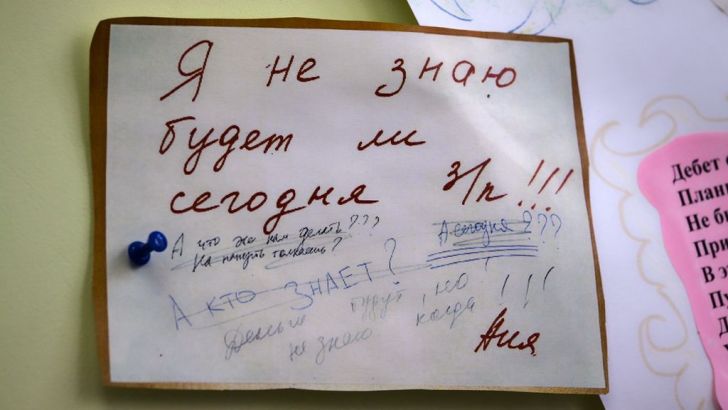 Я не знаю
будет ли
сегодня З/п!!!
А что же нам делать???
На панель толкаешь?
А сегодня???
А КТО ЗНАЕТ?
Деньги будут, но!
не знаю когда!!!
Аня
Дебет
План
Не б
При
В э
Пу
Д